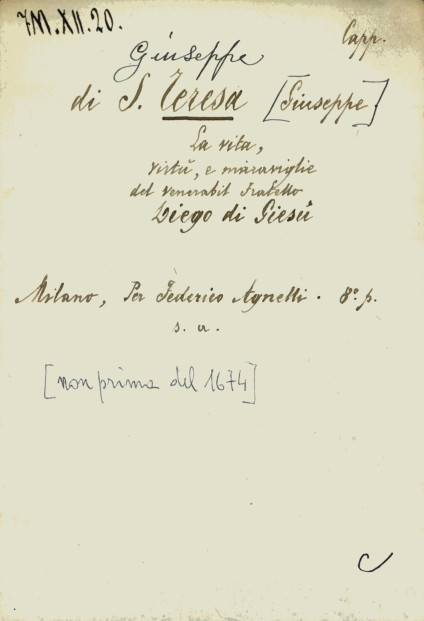 7M.XII.20.
Capp.
Giuseppe
di S. Teresa [Giuseppe]
La vita,
virtù, e maraviglie
del venerabil Fratello
Diego di Giesù
Milano, Per Federico Agnelli. 8º p.
s. a.
[non prima del 1674]